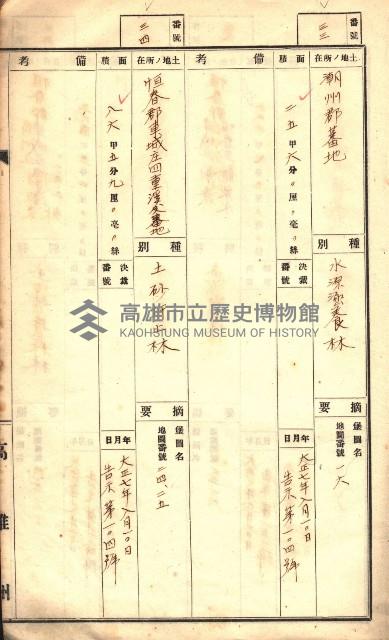 番號
三三
土地ノ所在
潮州郡蕃地
種別
水源涵養林
摘要
堡圖名
地圖番號 一六
面積
二五六甲〃分〃厘〃毫〃絲
決裁番號
年月日
大正七年八月一〇日
告示第一〇四號
備考
番號
三四
土地ノ所在
恒春郡車城庄四重溪蕃地
種別
土砂扞止林
摘要
堡圖名
地圖番號 二四、二五
面積
八六甲五分九厘〃毫〃絲
決裁番號
年月日
大正七年八月一〇日
告示第一〇四號
備考
高雄州
高雄市立歷史博物館
KAOHSIUNG MUSEUM OF HISTORY